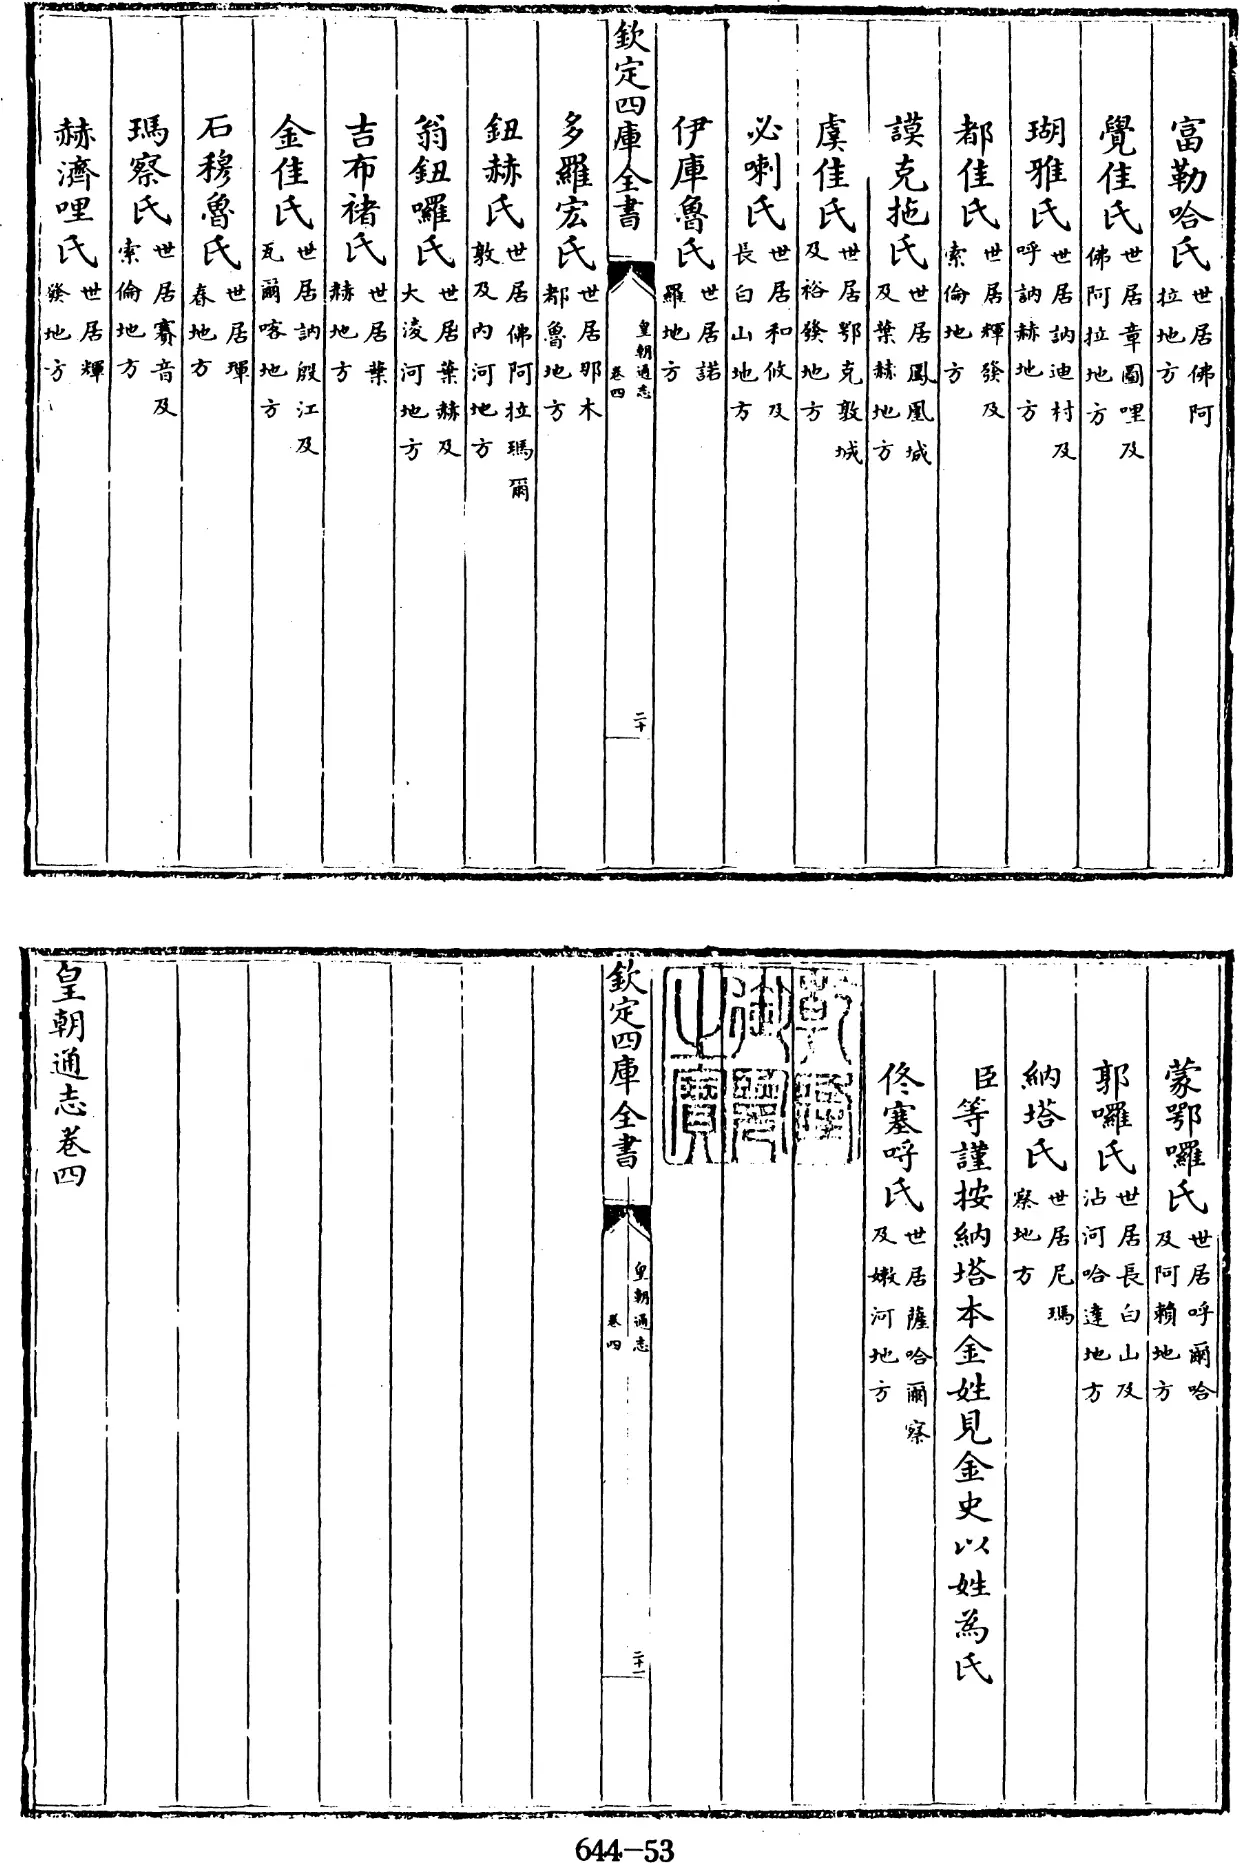 富勒哈氏世居佛阿拉地方
覺佳氏世居章圖哩及佛阿拉地方
瑚雅氏世居訥迪村及呼訥赫地方
都佳氏世居輝發及索倫地方
謨克拖氏世居鳳凰城及葉赫地方
虞佳氏世居鄂克敦城及裕發地方
必喇氏世居和攸及長白山地方
伊庫魯氏世居諾羅地方
欽定四庫全書
皇朝通志
卷四
二十
多羅宏氏世居那木都魯地方
鈕赫氏世居佛阿拉瑪爾敦及內河地方
翁鈕囉氏世居葉赫及大淩河地方
吉布褚氏世居葉赫地方
金佳氏世居訥殷江及瓦爾喀地方
石穆魯氏世居琿春地方
瑪察氏世居賽音及索倫地方
赫濟哩氏世居輝發地方
蒙鄂囉氏世居呼爾哈及阿賴地方
郭囉氏世居長白山及沾河哈達地方
納塔氏世居尼瑪察地方
臣等謹按納塔本金姓見金史以姓為氏
佟塞呼氏世居薩哈爾察及嫩河地方
乾隆
御覽
之寶
欽定四庫全書
皇朝通志
卷四
二十一
皇朝通志卷四
644-53